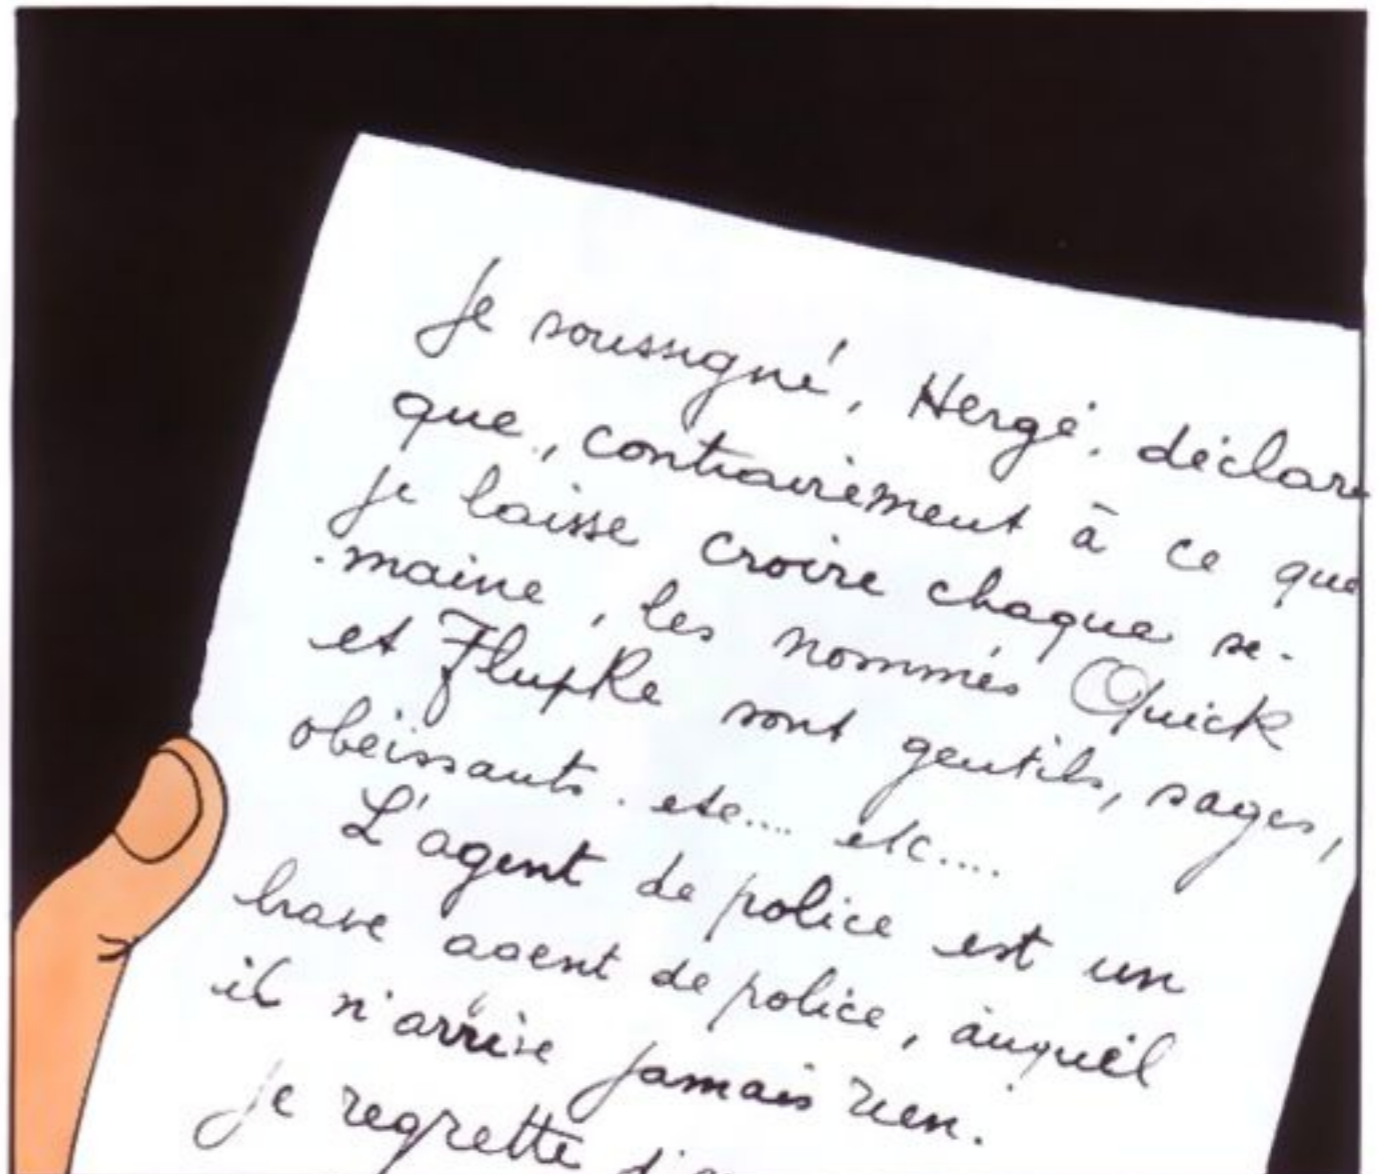 Je soussigné, Hergé, déclare
que, contrairement à ce que
je laisse croire chaque se-
maine, les nommés Quick
et Flupke sont gentils, sages,
obéissants. etc.... etc....
L'agent de police est un
brave agent de police, auquel
il n'arrive jamais rien.
Je regrette